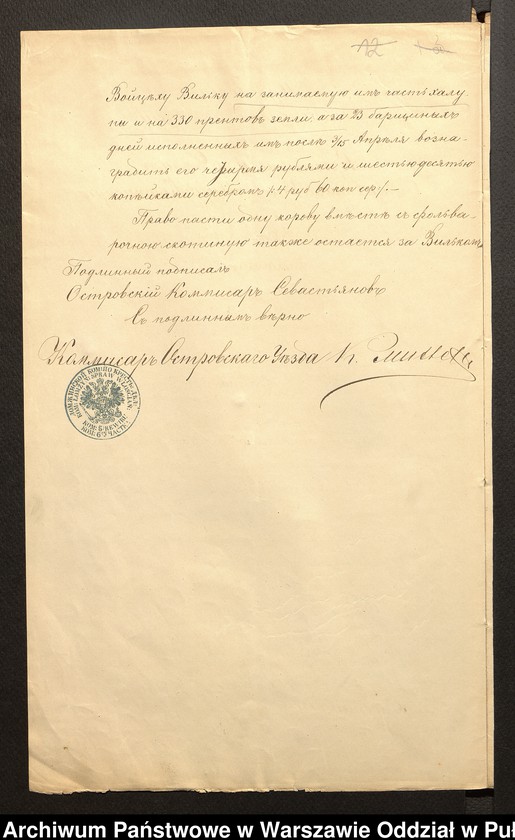 Войцѣху Вильку на занимаемую имъ часть халу
пы и на 330 прентовъ земли, а за 23 барщинныхъ
дней исполненныхъ имъ послѣ 3/15 Апрѣля возна-
градить его четырмя рублями и шестьюдесятью
копѣйками серебромъ /:4 руб 60 коп сер:/.—
Право пасти одну корову вмѣстѣ съ фольва-
рочною скотиную также остается за Вилькомъ
Подлинный подписалъ
Островскій Коммисаръ Севастьяновъ
Съ подлиннымъ вѣрно
Коммисаръ Островскаго Уѣзда
Archiwum Państwowe w Warszawie Oddział w Puł